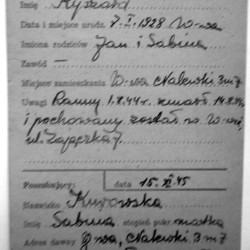 Imię Ryszard
Data i miejsce urodz. 7.I.1928 W-wa
Imiona rodziców Jan i Sabina
Zawód —
Miejsce zamieszkania W-wa, Nalewki 3 m 7
Uwagi Ranny 1.8.44 r. zmarł 14.8.44
i pochowany został w W-wie
ul. Zajączka 7
Poszukujący: data 15.XI.45
Nazwisko Kurowska
Imię Sabina stopień pokr. matka
Adres dawny W-wa, Nalewki 3 m 7